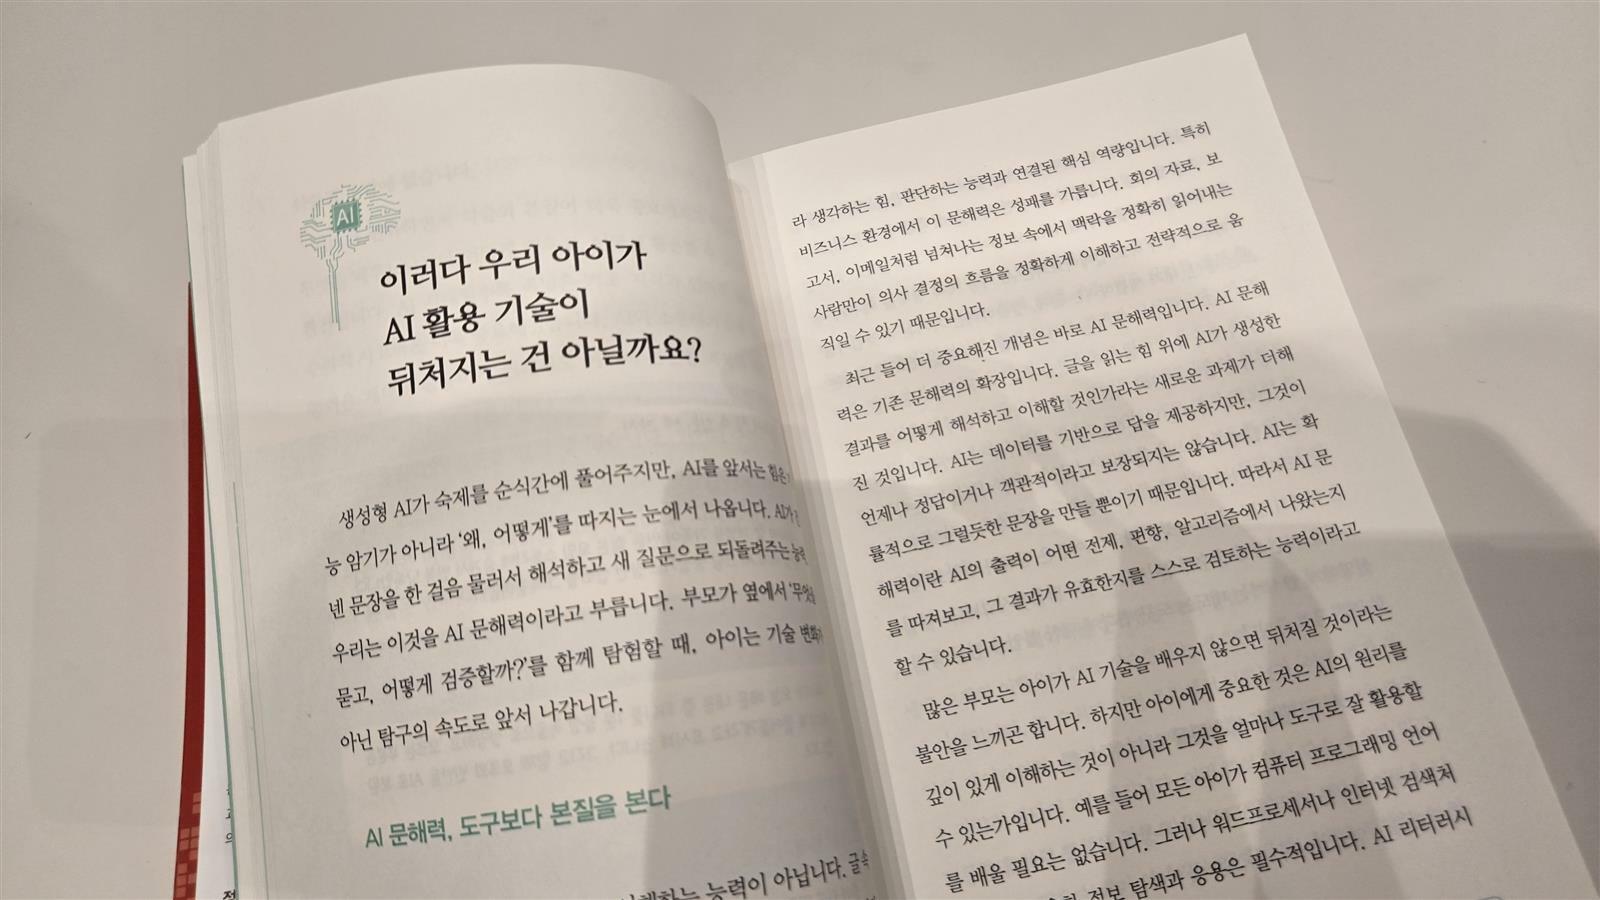 AI
이러다 우리 아이가
AI 활용 기술이
뒤처지는 건 아닐까요?
생성형 AI가 숙제를 순식간에 풀어주지만, AI를 앞서는 힘은
능 암기가 아니라 ‘왜, 어떻게’를 따지는 눈에서 나옵니다. AI가
넨 문장을 한 걸음 물러서 해석하고 새 질문으로 되돌려주는 능력
우리는 이것을 AI 문해력이라고 부릅니다. 부모가 옆에서 ‘무엇을
묻고, 어떻게 검증할까?’를 함께 탐험할 때, 아이는 기술 변화가
아닌 탐구의 속도로 앞서 나갑니다.
AI 문해력, 도구보다 본질을 본다
능력이 아닙니다. 글속
라 생각하는 힘, 판단하는 능력과 연결된 핵심 역량입니다. 특히
비즈니스 환경에서 이 문해력은 성패를 가릅니다. 회의 자료, 보
고서, 이메일처럼 넘쳐나는 정보 속에서 맥락을 정확히 읽어내는
사람만이 의사 결정의 흐름을 정확하게 이해하고 전략적으로 움
직일 수 있기 때문입니다.
최근 들어 더 중요해진 개념은 바로 AI 문해력입니다. AI 문해
력은 기존 문해력의 확장입니다. 글을 읽는 힘 위에 AI가 생성한
결과를 어떻게 해석하고 이해할 것인가라는 새로운 과제가 더해
진 것입니다. AI는 데이터를 기반으로 답을 제공하지만, 그것이
언제나 정답이거나 객관적이라고 보장되지는 않습니다. AI는 확
률적으로 그럴듯한 문장을 만들 뿐이기 때문입니다. 따라서 AI 문
해력이란 AI의 출력이 어떤 전제, 편향, 알고리즘에서 나왔는지
를 따져보고, 그 결과가 유효한지를 스스로 검토하는 능력이라고
할 수 있습니다.
많은 부모는 아이가 AI 기술을 배우지 않으면 뒤처질 것이라는
불안을 느끼곤 합니다. 하지만 아이에게 중요한 것은 AI의 원리를
깊이 있게 이해하는 것이 아니라 그것을 얼마나 도구로 잘 활용할
수 있는가입니다. 예를 들어 모든 아이가 컴퓨터 프로그래밍 언어
를 배울 필요는 없습니다. 그러나 워드프로세서나 인터넷 검색처
정보 탐색과 응용은 필수적입니다. AI 리터러시